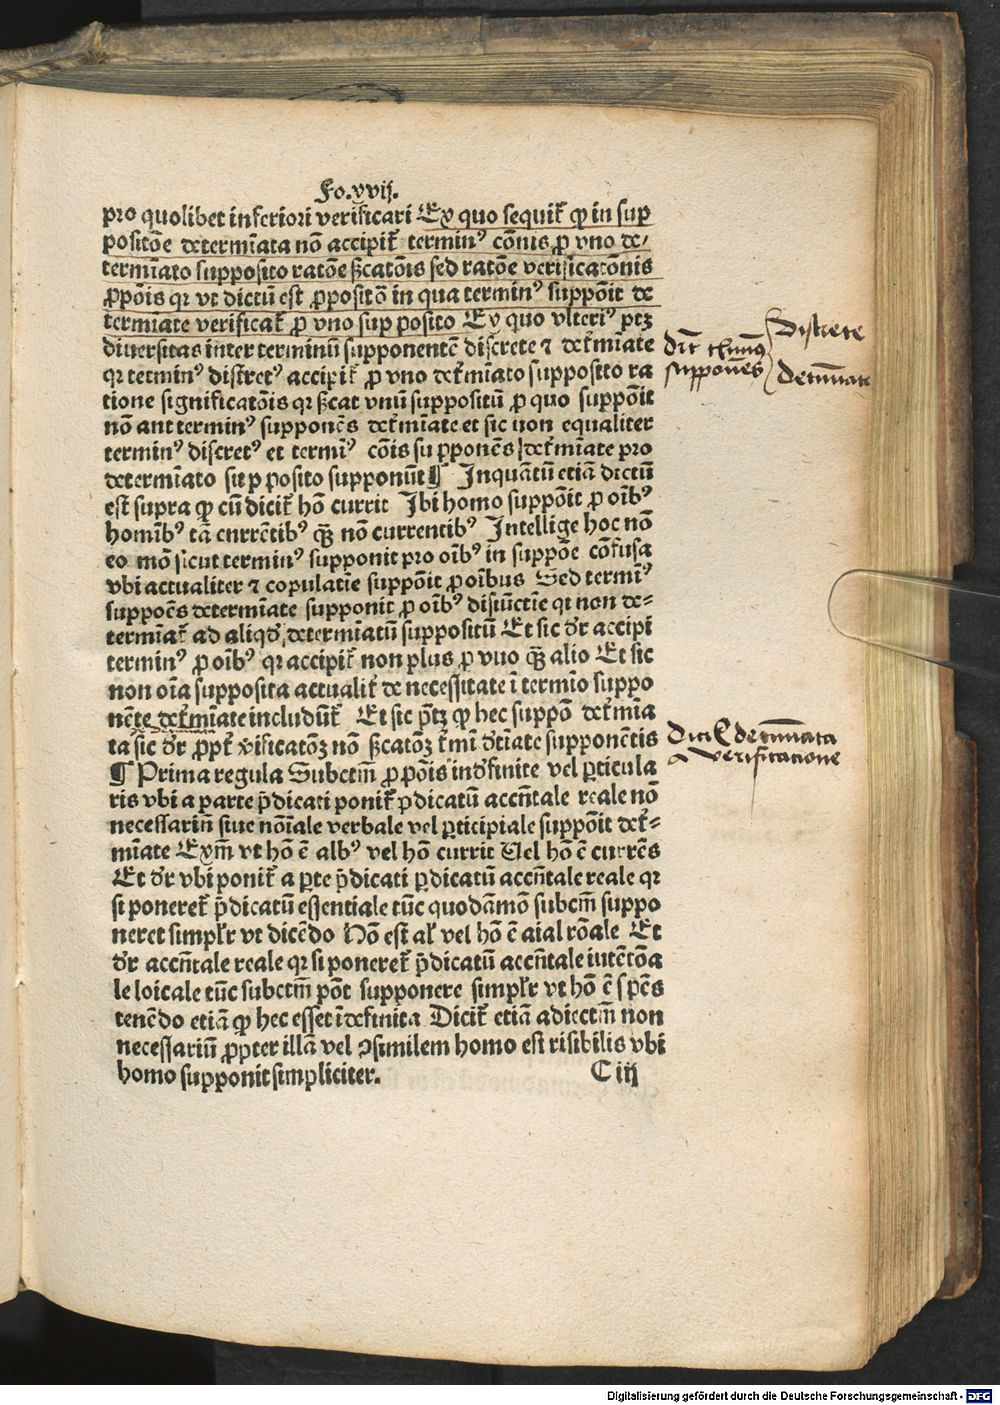 Fo.xvij.
pro quolibet inferiori verificari Ex quo sequit̃ ꝙ in sup
positõe determĩata nõ accipit̃ terminꝰ cõnis ꝓ vno de⸗
termĩato supposito ratõe ßcatõis sed ratõe verificatõnis
ꝓpõis qꝛ vt dictũ est ꝓpositõ in qua terminꝰ suppõit de
termĩate verificat̃ ꝓ vno sup posito Ex quo vlteriꝰ ptꝫ
diuersitas inter terminũ supponentẽ discrete ⁊ det̃mĩate
qꝛ terminꝰ discretꝰ accipit̃ ꝓ vno det̃mĩato supposito ra
tione significatõis qꝛ ßcat vnũ suppositũ ꝓ quo suppõit
nõ aut terminꝰ supponẽs det̃mĩate et sic non equaliter
terminꝰ discretꝰ et termĩꝰ cõis su pponẽs det̃mĩate pro
determĩato sup posito supponũt ¶ Inquãtũ etiã dictũ
est supra ꝙ cũ dicit̃ hõ currit Ibi homo suppõit ꝓ oĩbꝰ
homĩbꝰ tã cnrrẽtibꝰ ꝗ̃ꝫ nõ currentibꝰ Intellige hoc nõ
eo mõ sicut terminꝰ supponit pro oĩbꝰ in suppõe cõfusa
vbi actualiter ⁊ copulatĩe suppõit ꝓ oĩbus Sed termĩꝰ
suppoẽs determĩate supponit ꝓ oĩbꝰ disiũctĩe qꝛ non de⸗
termĩat̃ ad aliqď determĩatũ suppositũ Et sic dr̃ accipi
terminꝰ ꝓ oĩbꝰ qꝛ accipit̃ non plus ꝓ vuo ꝗ̃ꝫ alio Et sic
non oĩa supposita actualit̃ de necessitate ĩ termĩo suppo
nẽte det̃mĩate includũt̃ Et sic pꝫ ꝙ hec suppõ det̃mĩa
ta sic dr̃ ꝓpt̃ v̓ificatõꝫ nõ ßcatõꝫ t̃mĩ dt̃ĩate supponẽtis
¶ Prima regula Subctm̃ ꝓpõis indꝰfinite vel ꝑticula
ris vbi a parte p̃dicati ponit̃ p̃dicatũ accñtale reale nõ
necessariũ siue nõĩale verbale vel ꝑticipiale suppõit det̃⸗
mĩate Exm̃ vt hõ ẽ albꝰ vel hõ currit Uel hõ ẽ currẽs
Et dr̃ vbi ponit̃ a ꝑte p̃dicati p̃dicatũ accñtale reale qꝛ
si poneret̃ p̃dicatũ essentiale tũc quodãmõ subctm̃ suppo
neret simplr̃ vt dicẽdo Hõ est al̃ vel hõ ẽ aial rõale Et
dr̃ accñtale reale qꝛ si poneret̃ p̃dicatũ accñtale iutẽtõa
le loicale tũc subctm̃ põt supponere simplr̃ vt hõ ẽ spẽs
tenẽdo etiã ꝙ hec esset ĩdefinita Dicit̃ etiã adiectm̃ non
necessariũ ꝓpter illã vel ꝯsimilem homo est risibilis vbi
homo supponit simpliciter.
C iij
discrete
supponẽs
determinata
verificatione
Digitalisierung gefördert durch die Deutsche Forschungsgemeinschaft - DFG